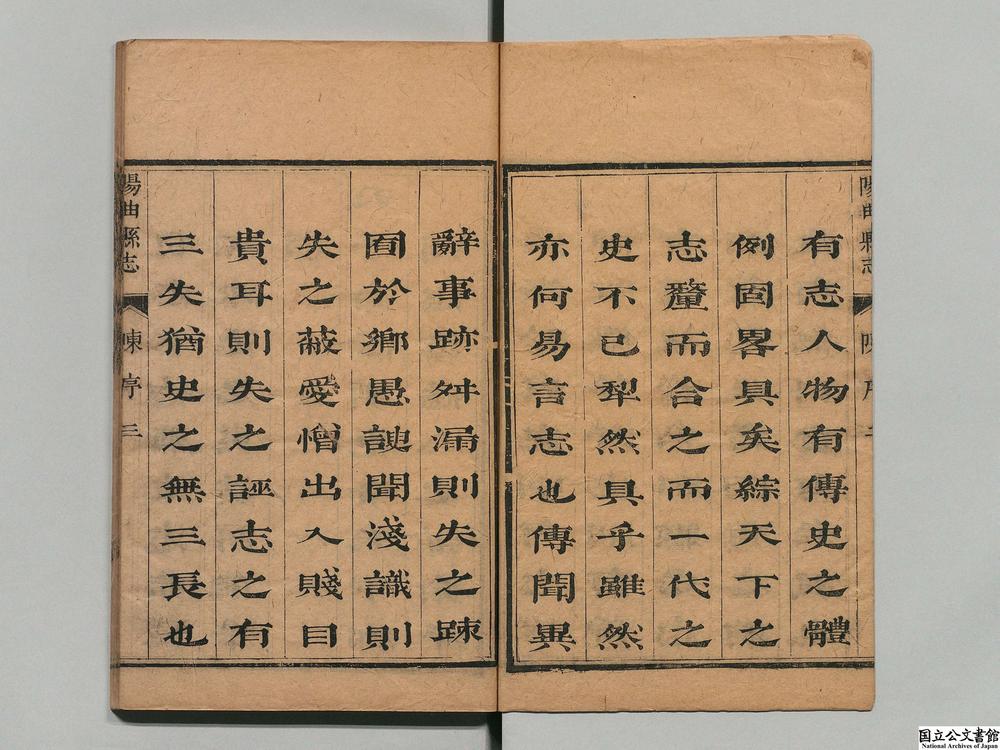 有志人物有傳史之體
例固畧具矣綜天下之
志釐而合之而一代之
史不已犁然具乎雖然
亦何易言志也傳聞異
辭事跡舛漏則失之踈
囿於鄉愚諛聞淺識則
失之蔽愛憎出入賤目
貴耳則失之誣志之有
三失猶史之無三長也
陽曲縣志 陳序 三
国立公文書館
National Archives of Japan